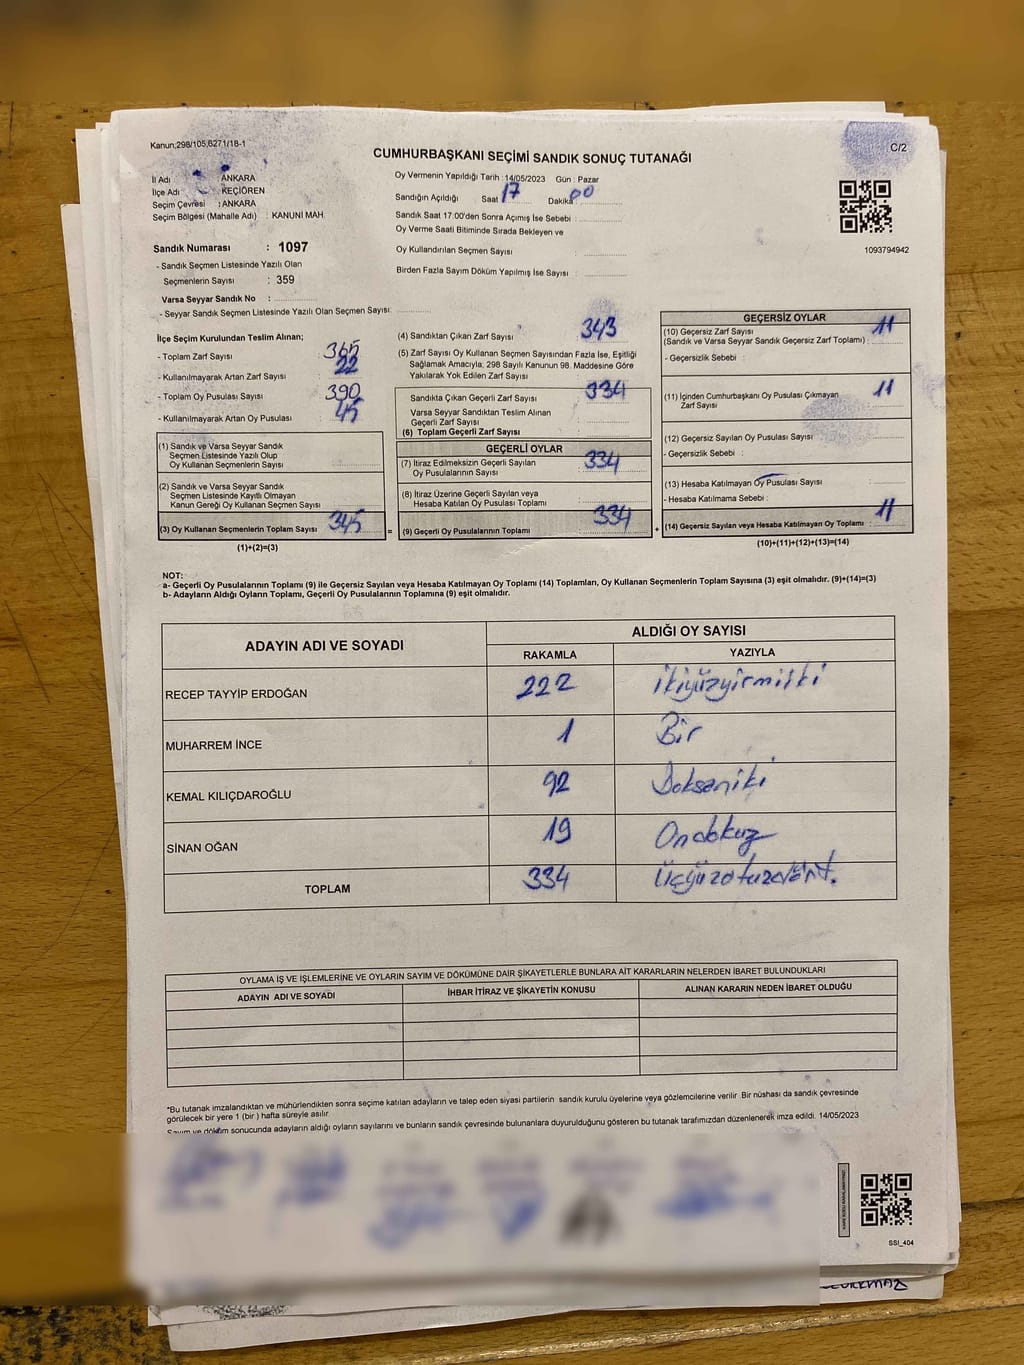 Kanun;298/105,6271/18-1
C/2
CUMHURBAŞKANI SEÇİMİ SANDIK SONUÇ TUTANAĞI
İl Adı : ANKARA
İlçe Adı : KEÇİÖREN
Seçim Çevresi : ANKARA
Seçim Bölgesi (Mahalle Adı) : KANUNİ MAH.
Sandık Numarası : 1097
- Sandık Seçmen Listesinde Yazılı Olan
Seçmenlerin Sayısı : 359
Varsa Seyyar Sandık No :
- Seyyar Sandık Seçmen Listesinde Yazılı Olan Seçmen Sayısı:
Oy Vermenin Yapıldığı Tarih : 14/05/2023 Gün : Pazar
Sandığın Açıldığı Saat 17 Dakika 00
Sandık Saat 17:00'den Sonra Açımış İse Sebebi :
Oy Verme Saati Bitiminde Sırada Bekleyen ve
Oy Kullandırılan Seçmen Sayısı :
Birden Fazla Sayım Döküm Yapılmış İse Sayısı :
1093794942
İlçe Seçim Kurulundan Teslim Alınan;
- Toplam Zarf Sayısı : 365
- Kullanılmayarak Artan Zarf Sayısı : 22
- Toplam Oy Pusulası Sayısı : 390
- Kullanılmayarak Artan Oy Pusulası : 45
(1) Sandık ve Varsa Seyyar Sandık
Seçmen Listesinde Yazılı Olup
Oy Kullanan Seçmenlerin Sayısı :
(2) Sandık ve Varsa Seyyar Sandık
Seçmen Listesinde Kayıtlı Olmayan
Kanun Gereği Oy Kullanan Seçmen Sayısı :
(3) Oy Kullanan Seçmenlerin Toplam Sayısı : 345 =
(1)+(2)=(3)
(4) Sandıktan Çıkan Zarf Sayısı : 343
(5) Zarf Sayısı Oy Kullanan Seçmen Sayısından Fazla İse, Eşitliği
Sağlamak Amacıyla; 298 Sayılı Kanunun 98. Maddesine Göre
Yakılarak Yok Edilen Zarf Sayısı :
Sandıkta Çıkan Geçerli Zarf Sayısı : 334
Varsa Seyyar Sandıktan Teslim Alınan
Geçerli Zarf Sayısı :
(6) Toplam Geçerli Zarf Sayısı :
GEÇERLİ OYLAR
(7) İtiraz Edilmeksizin Geçerli Sayılan
Oy Pusulalarının Sayısı : 334
(8) İtiraz Üzerine Geçerli Sayılan veya
Hesaba Katılan Oy Pusulası Toplamı :
(9) Geçerli Oy Pusulalarının Toplamı : 334 +
GEÇERSİZ OYLAR
(10) Geçersiz Zarf Sayısı
(Sandık ve Varsa Seyyar Sandık Geçersiz Zarf Toplamı) : 11
- Geçersizlik Sebebi :
(11) İçinden Cumhurbaşkanı Oy Pusulası Çıkmayan
Zarf Sayısı : 11
(12) Geçersiz Sayılan Oy Pusulası Sayısı :
- Geçersizlik Sebebi :
(13) Hesaba Katılmayan Oy Pusulası Sayısı : -
- Hesaba Katılmama Sebebi :
(14) Geçersiz Sayılan veya Hesaba Katılmayan Oy Toplamı : 11
(10)+(11)+(12)+(13)=(14)
NOT:
a- Geçerli Oy Pusulalarının Toplamı (9) ile Geçersiz Sayılan veya Hesaba Katılmayan Oy Toplamı (14) Toplamları, Oy Kullanan Seçmenlerin Toplam Sayısına (3) eşit olmalıdır. (9)+(14)=(3)
b- Adayların Aldığı Oyların Toplamı, Geçerli Oy Pusulalarının Toplamına (9) eşit olmalıdır.
ADAYIN ADI VE SOYADI ALDIĞI OY SAYISI
RAKAMLA YAZIYLA
RECEP TAYYİP ERDOĞAN 222 ikiyüzyirmiiki
MUHARREM İNCE 1 Bir
KEMAL KILIÇDAROĞLU 92 Doksaniki
SİNAN OĞAN 19 Ondokuz
TOPLAM 334 Üçyüzotuzdört.
OYLAMA İŞ VE İŞLEMLERİNE VE OYLARIN SAYIM VE DÖKÜMÜNE DAİR ŞİKAYETLERLE BUNLARA AİT KARARLARIN NELERDEN İBARET BULUNDUKLARI
ADAYIN ADI VE SOYADI İHBAR İTİRAZ VE ŞİKAYETİN KONUSU ALINAN KARARIN NEDEN İBARET OLDUĞU
*Bu tutanak imzalandıktan ve mühürlendikten sonra seçime katılan adayların ve talep eden siyasi partilerin sandık kurulu üyelerine veya gözlemcilerine verilir. Bir nüshası da sandık çevresinde
görülecek bir yere 1 (bir ) hafta süreyle asılır.
Sayım ve döküm sonucunda adayların aldığı oyların sayılarını ve bunların sandık çevresinde bulunanlara duyurulduğunu gösteren bu tutanak tarafımızdan düzenlenerek imza edildi. 14/05/2023
SSI_404